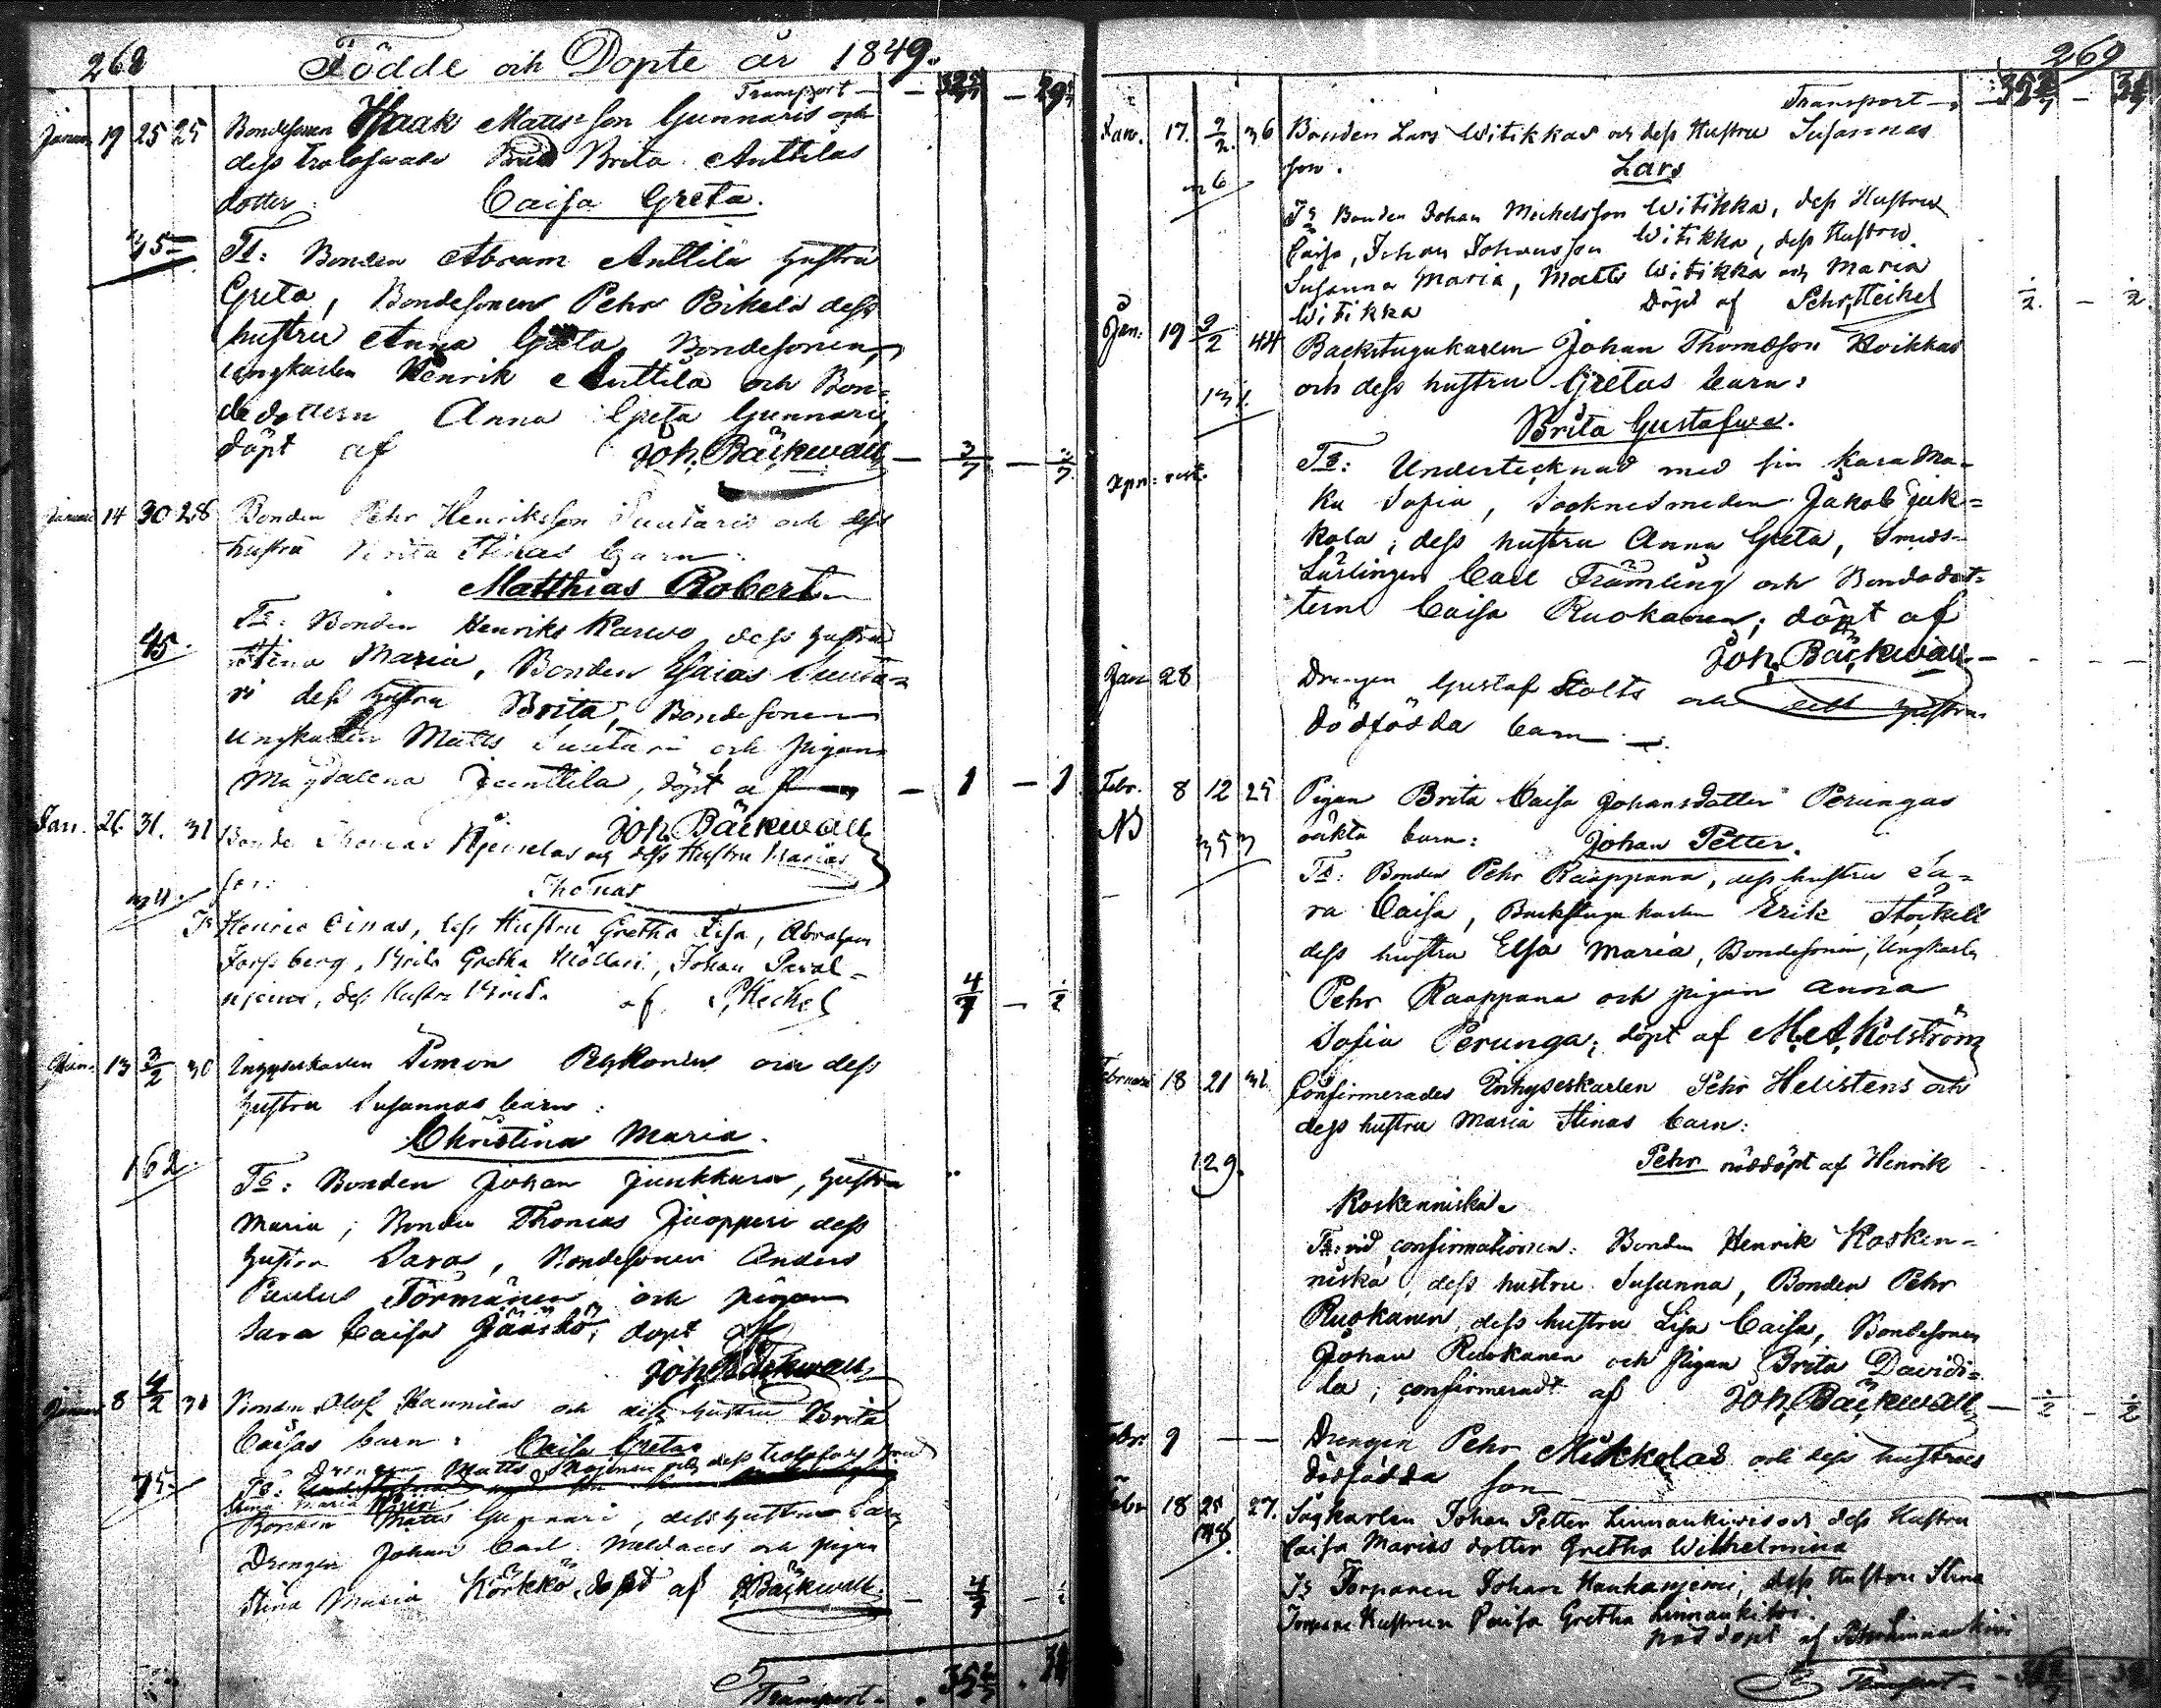 268 Födde och Dopte år 1849.
Transport — — 32 5/7 — 29
Januari 19 25 25 Bondesonen Isaak Matts-son Gunnaris och
dess trolofwade Brud Brita Anttilas
dotter: Caisa Greta.
35 Ts: Bonden Abram Anttila hustru
Greta, Bondesonen Pehr Pikela dess
hustru Anna Greta, Bondesonen,
ungkarlen Henrik Anttila och Bon-
dedottern Anna Greta Gunnari,
döpt af Joh. Bäckwall — 3/7 —
Januari 14 30 28 Bonden Pehr Henriksson Suutaris och dess
hustru Brita Stinas barn:
Matthias Robert
Ts: Bonden Henriks Karwo, dess hustru
45. Stina Maria, Bonden Esaias Suuta-
ri dess hustru Brita, Bondesonen
ungkarlen Matts Suutari och pigan
Magdalena Junttila, döpt af — 1 — 1
Joh. Bäckwall
Jan. 26. 31. 31 Bonde Thomas och dess Hustru Marias
son: Thomas
Ts Henric Oinas, dess Hustru Gretha Lisa, Abraham
Forssberg, Brita Gretha Möllari, Johan Paval-
niemi, dess Hustru Brita. af P. Heikel 4/7 — 1/2
13 3/2 30 Inhyseskarlen Simon Pehkonens och dess
hustru Susannas barn:
Christina Maria.
162. Ts: Bonden Johan Junkkura, hustru
Maria; Bonden Thomas Juopperi dess
hustru Sara, Bondesonen Anders
Paulus Törmänen och pigan
Sara Caisa Jääskö; döpt af
Joh. Bäckwall
Januari 8 4/2 31 Bonden Olof Kannilas och dess hustru Brita
Caisas barn: Caisa Greta
Drengen Matts och dess trolofwade Brud
75. Ts:
Stina Maria
Bonden Matts Gunnari, dess hustru Sara
Drengen Johan Carl och pigan
Stina Maria Körkkö, döpt af J. Bäckwall. — 4/7 —
Transport — 35 2/7 . 31
269
Transport — — 35 2/7 — 31
Jan. 17. 2/2. 36 Bonden Lars Witikkas och dess Hustru Susannas
son. Lars
26 Ts Bonden Johan Michelsson Witikka, dess Hustru
Caisa, Johan Johansson Witikka, dess Hustru
Susanna Maria, Matts Witikka och Maria
Witikka Döpt af Pehr Heikel 1/2. — 1/2
Jan. 19 9/2 44 Backstugukarlen Johan Thomasson Koikkas
och dess hustru Gretas barn:
131. Brita Gustafwa.
Ts: Undertecknad med sin kära Ma-
ka Sofia, Socknesmeden Jakob Juk-
kola, dess hustru Anna Greta, Smeds-
Lärlingen Carl Främling och Bondedot-
tern Caisa Ruokanen; döpt af
Joh. Bäckwall —
Jan 28 Drengen Gustaf Stolts och dess hustrus
dödfödda barn —:
Febr. 8 12 25 Pigan Brita Caisa Johansdotter Perungas
NB oäkta barn: Johan Petter.
353 Ts: Bonden Pehr Raappana, dess hustru Sa-
ra Caisa, Backstugukarlen Erik Stockell
dess hustru Elsa Maria, Bondesonen, Ungkarlen
Pehr Raappana och pigan Anna
Sofia Perunga; döpt af M. A. Kolström
Februari 18 21 32 Confirmerades Inhyseskarlen Pehr Helistens och
dess hustru Maria Stinas barn:
129. Pehr nöddöpt af Henrik
Koskenniska.
Ts: vid confirmationen: Bonden Henrik Kosken-
niska, dess hustru Susanna, Bonden Pehr
Ruokanen, dess hustru Lisa Caisa, Bondesonen
Johan Ruokanen och Pigan Brita Davidi-
la; confirmeradt af Joh. Bäckwall — 1/2 — 1/2
Febr. 9 — — Drengen Pehr Mikkolas och dess hustrus
dödfödda son
Febr 18 25 27. Sågkarlen Johan Petter Linnankivis och dess Hustru
Caisa Marias dotter Gretha Wilhelmina
Ts Torparen Johan Haukaniemi, dess Hustru Stina
Hustrun Caisa Gretha Linnankivi.
nöddöpt af Linnankivi
Transport —